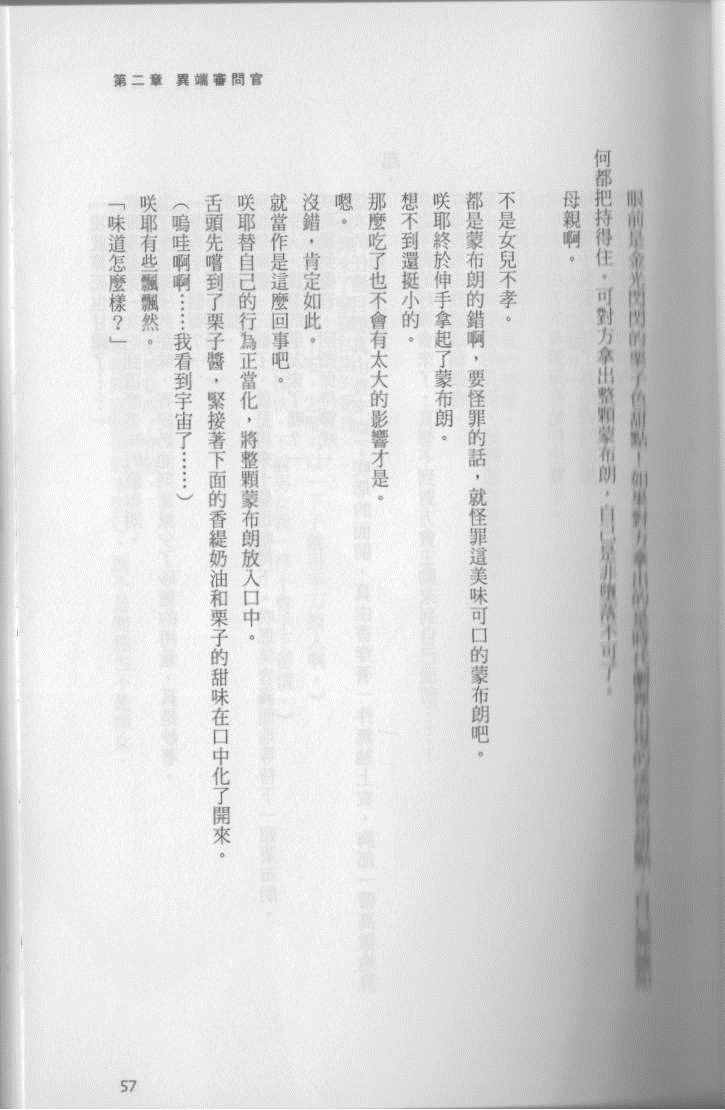 第二章 異端審問官
眼前是金光閃閃的栗子色甜點!如果對方拿出的是
何都把持得住,可對方拿出整顆蒙布朗,自己是非墮落不可了。
母親啊。
不是女兒不孝。
都是蒙布朗的錯啊,要怪罪的話,就怪罪這美味可口的蒙布朗吧。
咲耶終於伸手拿起了蒙布朗。
想不到還挺小的。
那麼吃了也不會有太大的影響才是。
嗯。
沒錯,肯定如此。
就當作是這麼回事吧。
咲耶替自己的行為正當化,將整顆蒙布朗放入口中。
舌頭先嚐到了栗子醬,緊接著下面的香緹奶油和栗子的甜味在口中化了開來。
(嗚哇啊啊……我看到宇宙了……)
咲耶有些飄飄然。
「味道怎麼樣?」
57